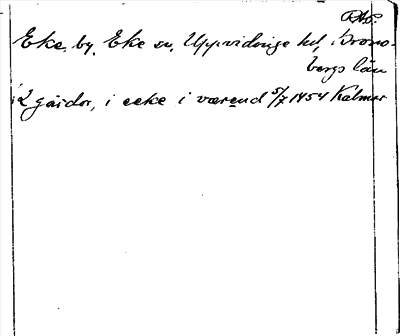 RAP
Eke, by, Eke sn, Uppvidinge hd, Krono-
bergs län
i 2 gårdor, i eeke i værend 5/7 1454 Kalmar